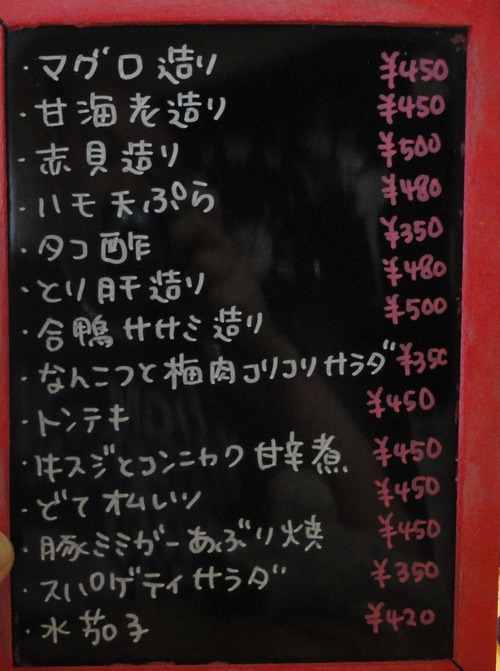 ・マグロ造り ¥450
・甘海老造り ¥450
・赤貝造り ¥500
・ハモ天ぷら ¥480
・タコ酢 ¥350
・とり肝造り ¥480
・合鴨ササミ造り ¥500
・なんこつと梅肉コリコリサラダ ¥350
・トンテキ ¥450
・牛スジとコンニャク甘辛煮 ¥450
・どてオムレツ ¥450
・豚ミミガーあぶり焼 ¥450
・スパゲティサラダ ¥350
・水茄子 ¥420